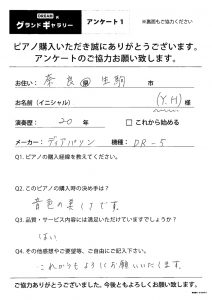 グランドギャラリー アンケート1 ※裏面もご協力ください
ピアノ購入いただき誠にありがとうございます。
アンケートのご協力お願い致します。
お住い: 奈良 県 生駒 市
お名前(イニシャル) (Y.H) 様
演奏歴: 20 年 □ これから始める
メーカー: ディアパソン 機種: DR-5
Q1. ピアノの購入経緯を教えてください。
Q2. このピアノの購入時の決め手は?
音色の美しさです。
Q3. 品質・サービス内容には満足いただけていますでしょうか?
はい
Q4. その他感想やご要望等、ご自由にご記入下さい。
これからもよろしくお願いいたします。
ご協力ありがとうございました。今後ともよろしくお願い致します。